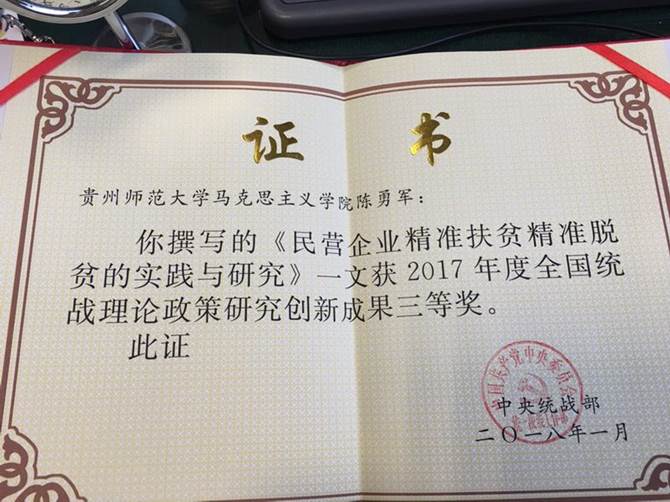 证 书
贵州师范大学马克思主义学院陈勇军：
你撰写的《民营企业精准扶贫精准脱
贫的实践与研究》一文获 2017 年度全国统
战理论政策研究创新成果三等奖。
此证
中国共产党中央委员会
统一战线工作部
中央统战部
二〇一八年一月